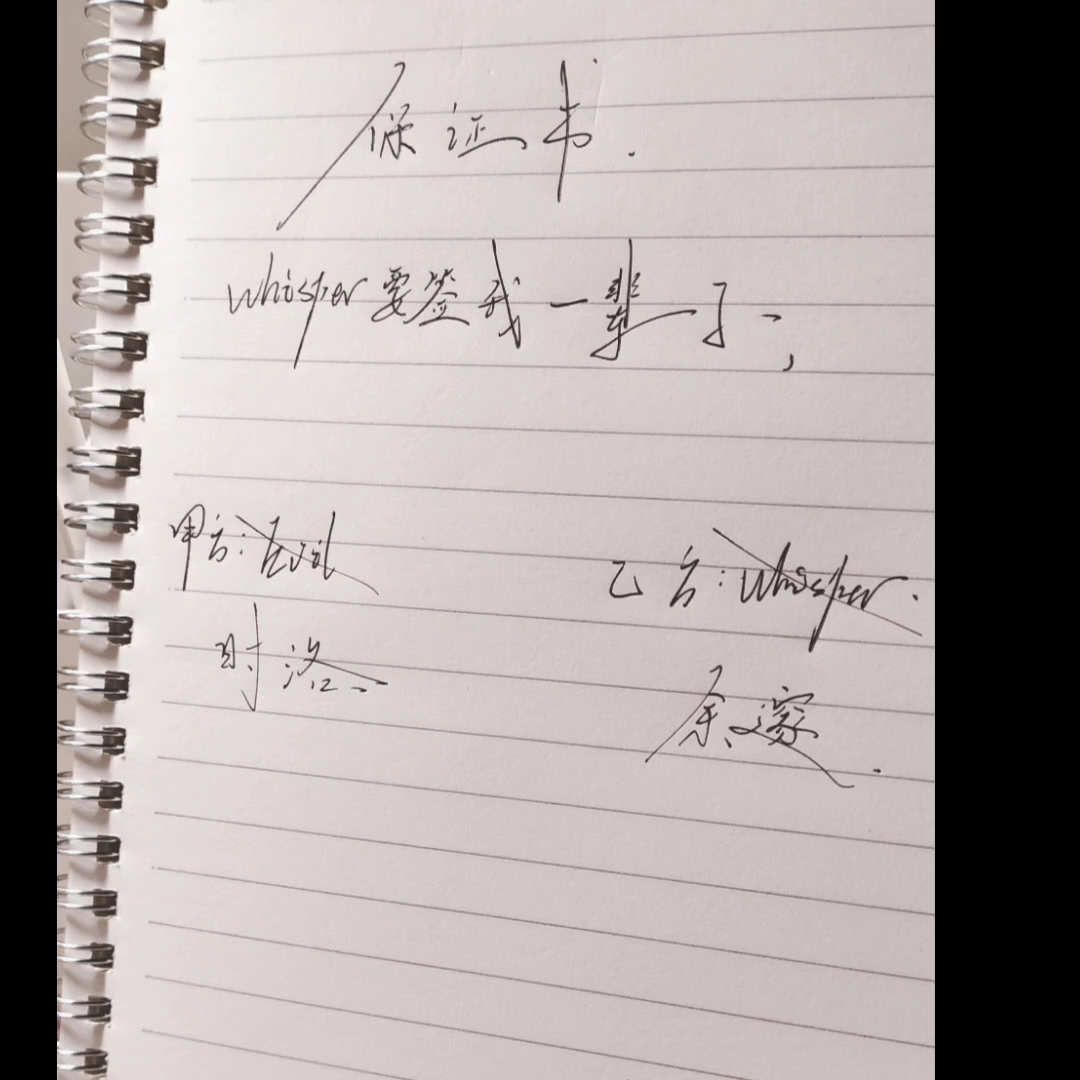 保证书.
whisper要签我一辈子,
甲方:Evil 乙方:whisper.
时洛 余邃.